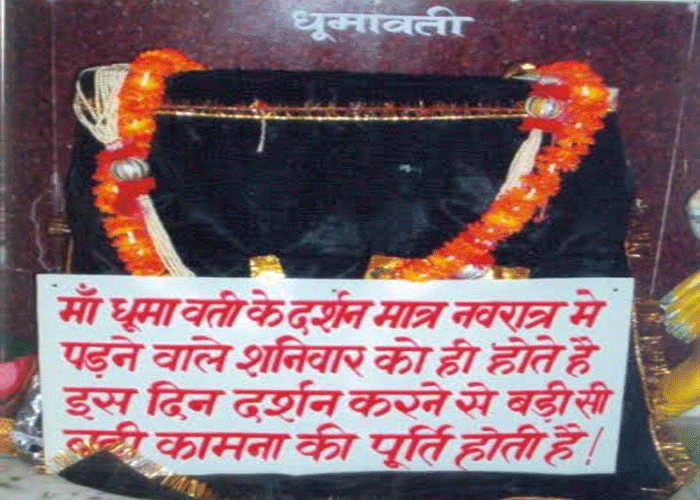 धूमावती
माँ धूमा वती के दर्शन मात्र नवरात्र मे
पड़ने वाले शनिवार को ही होते है
इस दिन दर्शन करने से बड़ी सी
कामना की पूर्ति होती है!